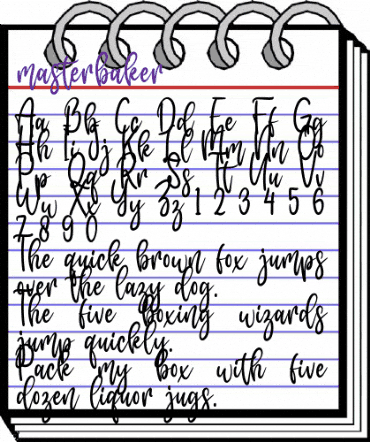 masterbaker
Aa Bb Cc Dd Ee Ff Gg
Hh Ii Jj Kk Ll Mm Nn Oo
Pp Qq Rr Ss Tt Uu Vv
Ww Xx Yy Zz 1 2 3 4 5 6
7 8 9 0
The quick brown fox jumps
over the lazy dog.
The five boxing wizards
jump quickly.
Pack my box with five
dozen liquor jugs.